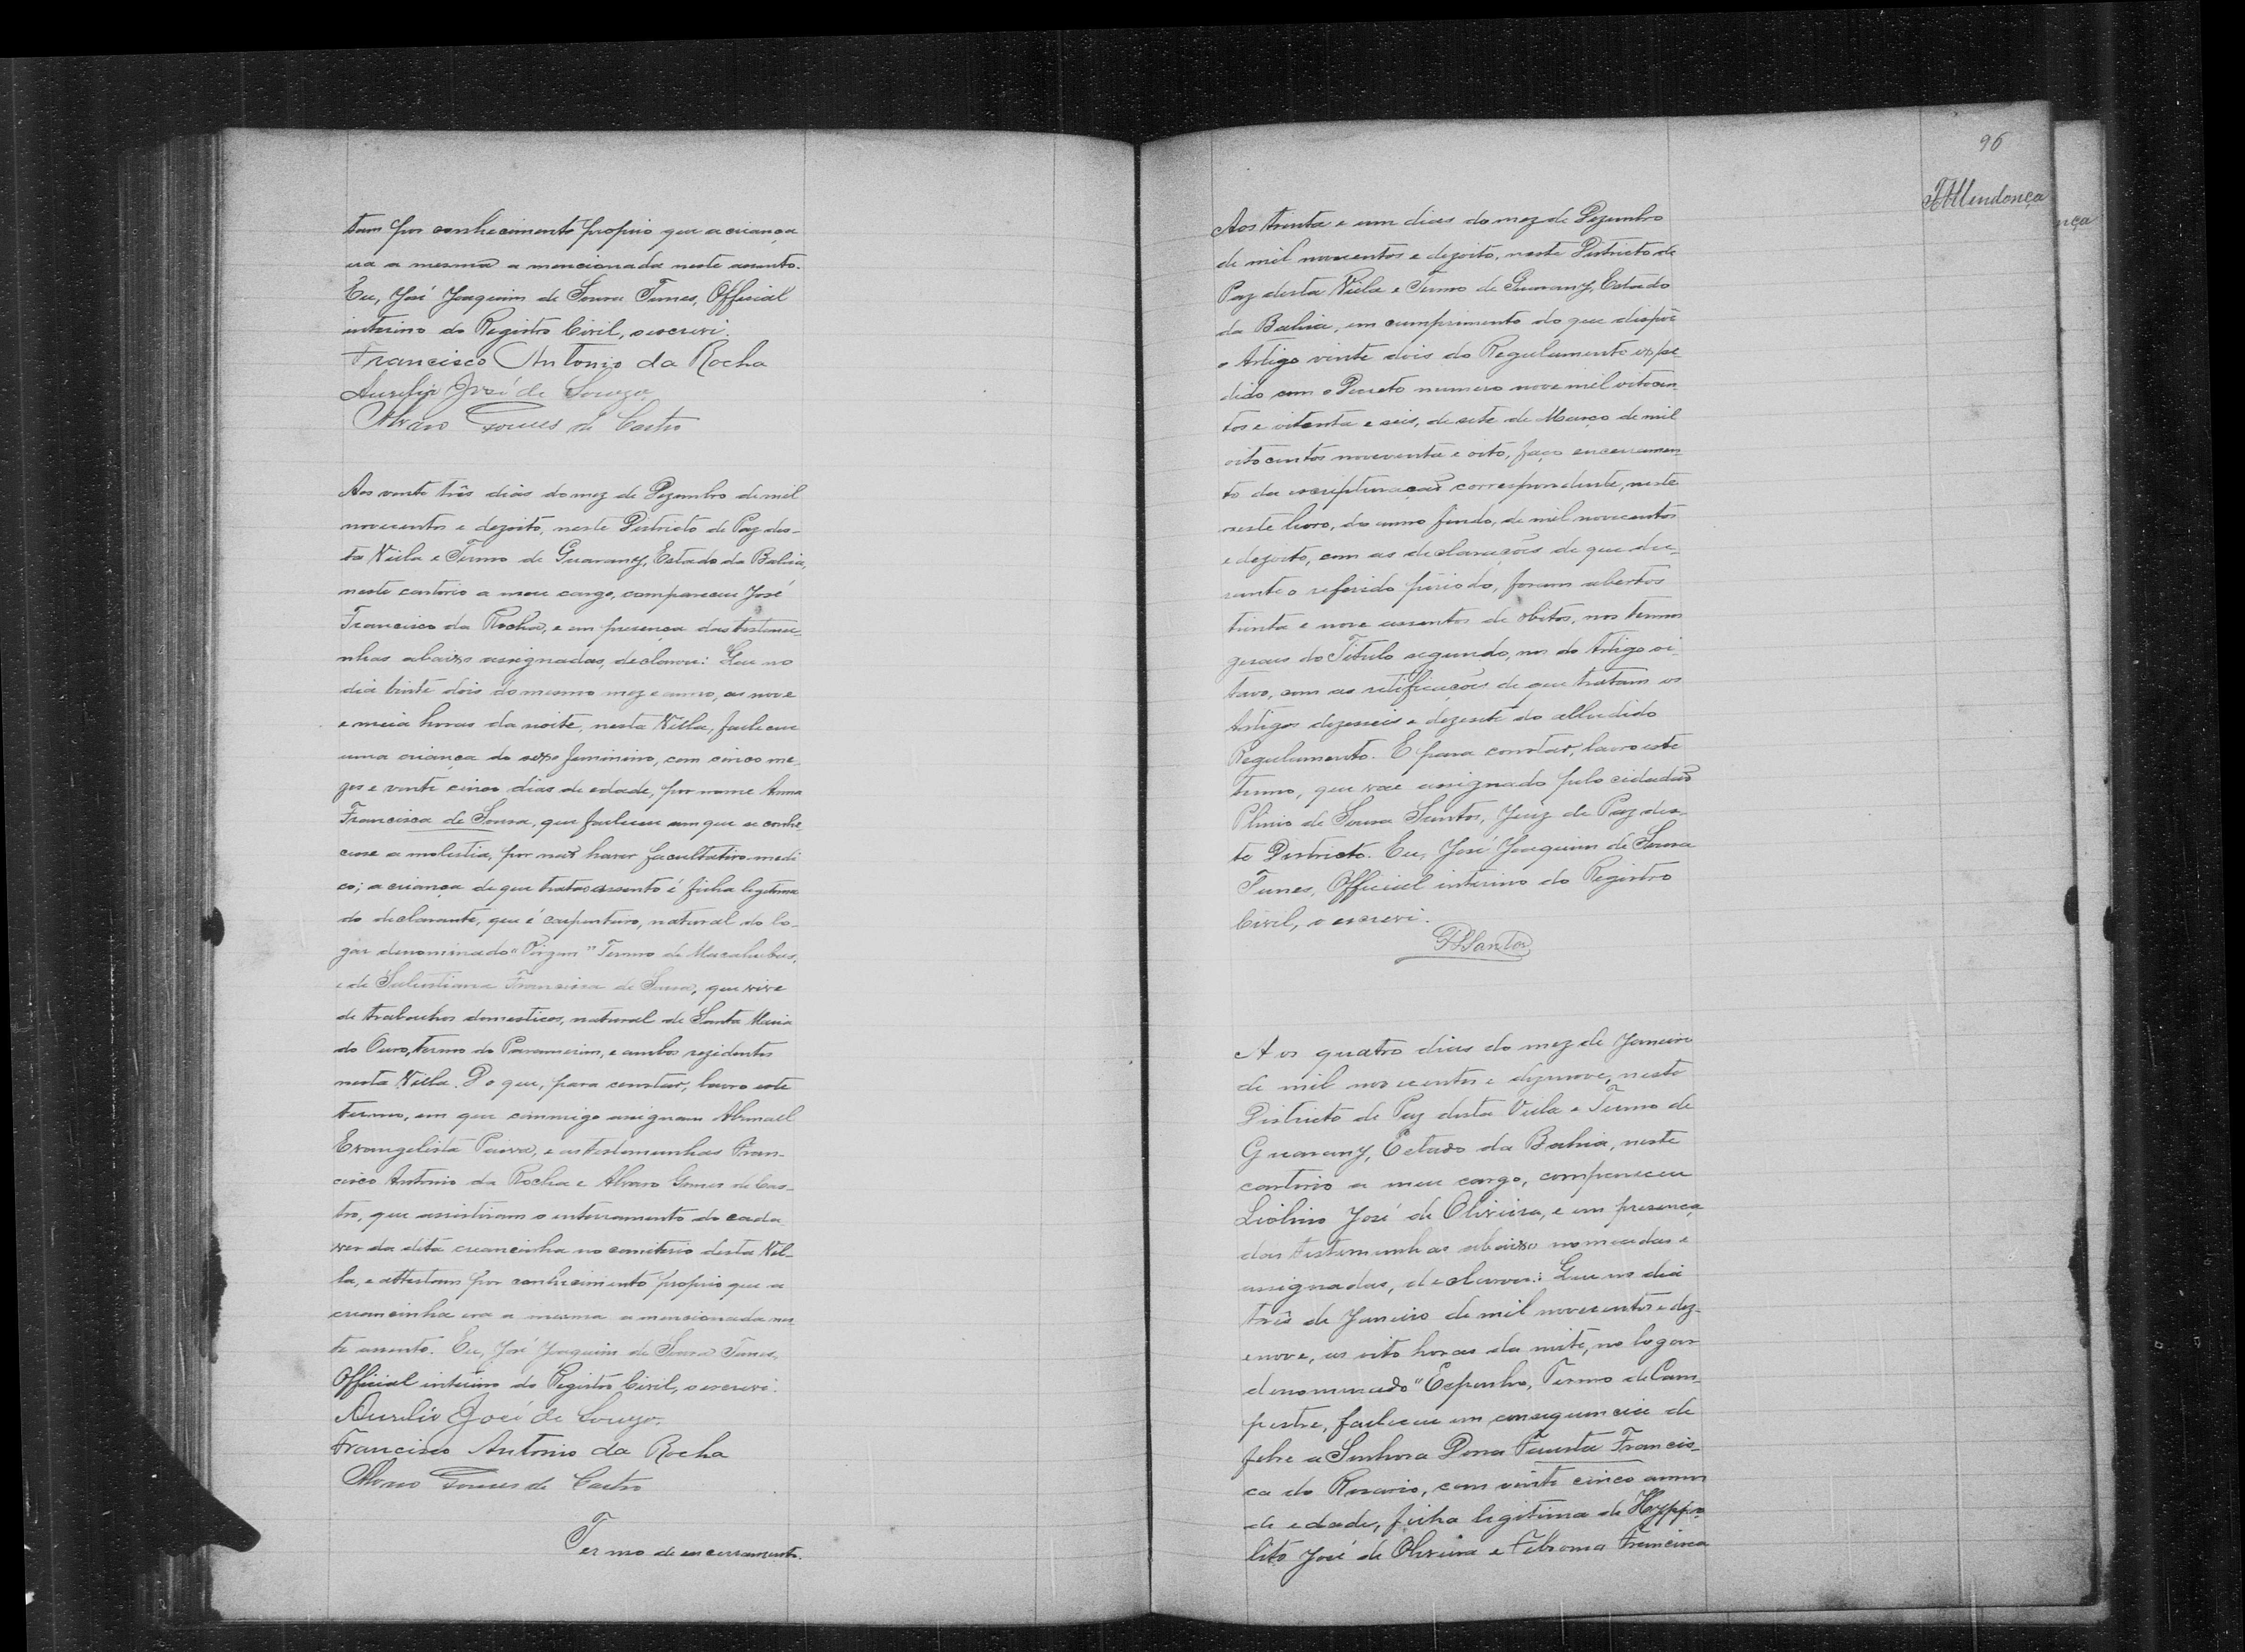 tam por conhecimento proprio que a criança
era a mesma a mencionada neste assento.
Eu, José Joaquim de Sousa Tunes, Official
interino do Registro Civil, o escrevi.
Francisco Antonio da Rocha
Aurelio José de Souza
Alvaro Gomes de Castro
Aos vinte três dias do mez de Dezembro de mil
novecentos e dezoito, neste Districto de Paz des-
ta Villa e Termo de Guarany, Estado da Bahia,
neste cartorio a meu cargo, compareceu José
Francisco da Rocha, e em presença das testemu-
nhas abaixo assignadas, declarou: Que no
dia vinte dois do mesmo mez e anno, as nove
e meia horas da noite, nesta Villa, falleceu
uma criança do sexo feminino, com cinco me-
zes e vinte cinco dias de edade, por nome Anna
Francisca de Sousa, que falleceu sem que se conhe
cesse a molestia, por não haver facultativo medi
co; a criança de que trata o assento é filha legitima
do declarante, que é carpinteiro, natural do lo-
gar denominado " " Termo de Macahubas,
e de Salustiana Francisca de Sousa, que vive
de trabalhos domesticos, natural de Santa Maria
do Ouro, termo do Paramerim, e ambos rezidentes
nesta Villa. Do que, para constar, lavro este
termo, em que commigo assignam
Evangelista Paiva, e as testemunhas Fran-
cisco Antonio da Rocha e Alvaro Gomes de Cas-
tro, que assistiram o enterramento do cada-
ver da dita creancinha no cemiterio desta Vil-
la, e attestam por conhecimento proprio que a
creancinha era a mesma a mencionada nes-
te assento. Eu, José Joaquim de Sousa Tunes,
Official interino do Registro Civil, o escrevi.
Aurelio José de Souza.
Francisco Antonio da Rocha
Alvaro Gomes de Castro
Termo de encerramento.
96
Mendonça
nça
Aos trinta e um dias do mez de Dezembro
de mil novecentos e dezoito, neste Districto de
Paz desta Villa e Termo de Guarany, Estado
da Bahia, em cumprimento do que dispõe
o Artigo vinte dois do Regulamento expe-
dido com o Decreto numero nove mil oitocen-
tos e oitenta e seis, de sete de Março de mil
oitocentos novenventa e oito, faço encerramen-
to da escripturação correspondente, neste
neste livro, do anno findo, de mil novecentos
e dezoito, com as declarações de que du-
rante o referido périodo, foram abertos
trinta e nove assentos de obitos, nos termos
geraes do Titulo segundo, nos do Artigo oi-
tavo, com as retificações de que tratam os
Artigos dezesseis e dezesete do alludido
Regulamento. E para constar, lavro este
termo, que vae assignado pelo cidadão
Plinio de Sousa Santos, Juiz de Paz des-
te Districto. Eu, José Joaquim de Sousa
Tunes, Official interino do Registro
Civil, o escrevi.
Santos
Aos quatro dias do mez de Janeiro
de mil novecentos e dezenove, neste
Districto de Paz desta Villa e Termo de
Guarany, Estado da Bahia, neste
cartorio a meu cargo, compareceu
Liolino José de Oliveira, e em presença
das testemunhas abaixo nomeadas e
assignadas, declarou: Que no dia
três de Janeiro de mil novecentos e dez-
enove, as oito horas da noite, no logar
denominado "Espinho, Termo de Cam-
pestre, falleceu em consequencia de
febre a Senhora Dona Fausta Francis-
ca do Rosario, com vinte cinco annos
de edade, filha legitima de Hyppo-
lito José de Oliveira e Francisca